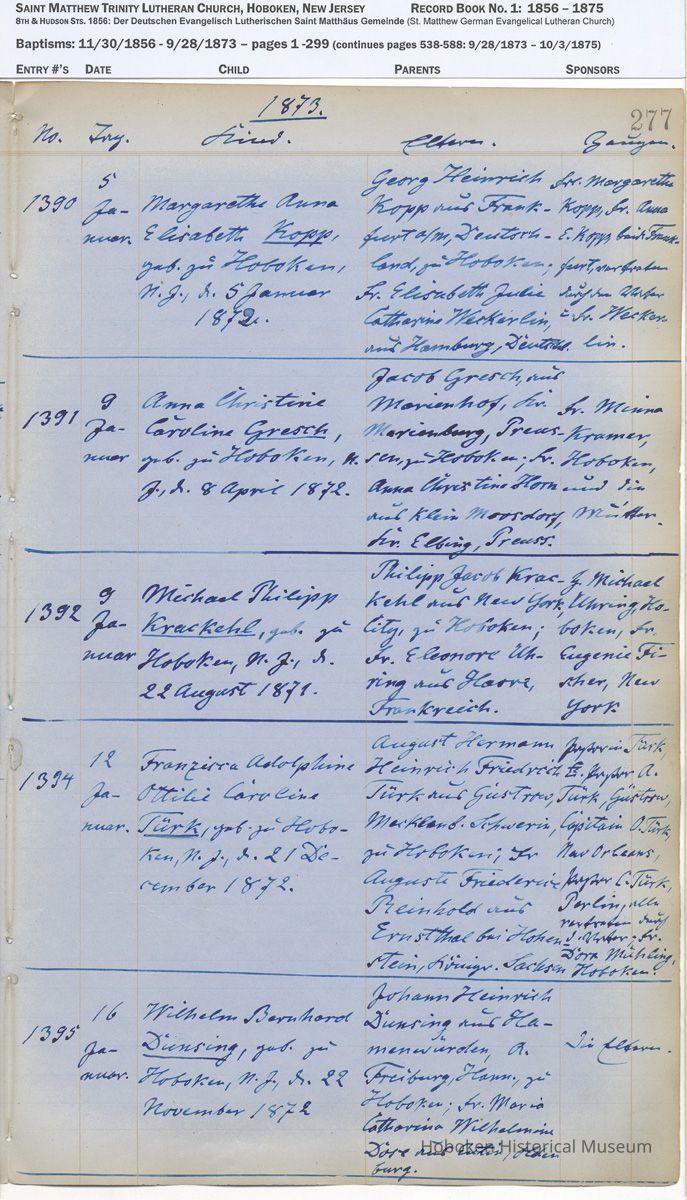 SAINT MATTHEW TRINITY LUTHERAN CHURCH, HOBOKEN, NEW JERSEY RECORD BOOK NO. 1: 1856 – 1875
8TH & HUDSON STS. 1856: Der Deutschen Evangelisch Lutherischen Saint Matthäus Gemeinde (St. Matthew German Evangelical Lutheran Church)
Baptisms: 11/30/1856 - 9/28/1873 – pages 1 -299 (continues pages 538-588: 9/28/1873 – 10/3/1875)
ENTRY #'S DATE CHILD PARENTS SPONSORS
1873.
277
No. Tag. Kind. Eltern. Zeugen.
1390
5
Ja-
nuar.
Margarethe Anna
Elisabeth Kopp,
geb. zu Hoboken,
N. J., d. 5 Januar
1872.
Georg Heinrich
Kopp aus Frank-
furt a/m, Deutsch-
land, zu Hoboken;
Fr. Elisabeth Julie
Catharine Weckerlin,
aus Hamburg, Deutschl.
Fr. Margarethe
Kopp, Fr. Anna
E. Kopp, beide Frank-
furt, vertreten
durch den Vater
u. Fr. Wecker-
lin.
1391
9
Ja-
nuar
Anna Christine
Caroline Gresch,
geb. zu Hoboken, N.
J., d. 8 April 1872.
Jacob Gresch, aus
Marienhof, Kr.
Marienburg, Preus-
sen, zu Hoboken; Fr.
Anna Christine Horn
aus Klein Moosdorf,
Kr. Elbing, Preuss.
Fr. Minna
Kramer,
Hoboken,
und die
Mutter.
1392
9
Ja-
nuar
Michael Philipp
Krackehl, geb. zu
Hoboken, N. J., d.
22 August 1871.
Philipp Jacob Krac-
kehl aus New York
City, zu Hoboken;
Fr. Eleonore Uh-
ring aus Havre,
Frankreich.
H. Michael
Uhring Ho-
boken, Fr.
Eugenie Fi-
scher, New
York
1394
12
Ja-
nuar.
Franzisca Adolphine
Ottilie Caroline
Türk, geb. zu Hobo-
ken, N. J., d. 21 De-
cember 1872.
August Hermann
Heinrich Friedrich
Türk aus Güstrow,
Mecklenb. Schwerin,
zu Hoboken; Fr
Auguste Friederice
Reinhold aus
Ernstthal bei Hohen
stein, Königr. Sachsen
Pastorin Türk,
Pastor A.
Türk, Güstrow,
Capitain O. Türk,
New Orleans,
Pastor C. Türk,
Berlin, alle
vertreten durch
d. Vater; Fr.
Dora Mühling,
Hoboken.
1395
16
Ja-
nuar.
Wilhelm Bernhard
Dünsing, geb. zu
Hoboken, N. J., d. 22
November 1872
Johann Heinrich
Dünsing aus Ha-
menwürden, A.
Freiburg, Hann., zu
Hoboken; Fr. Maria
Catharina Wilhelmine
Döse aus
burg.
Die Eltern.
Hoboken Historical Museum